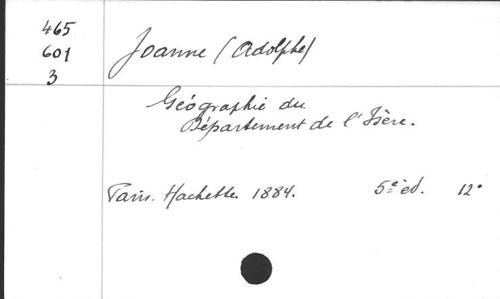 465
601
3
Joanne (Adolphe)
Géographie du
Département de l'Isère.
Paris. Hachette. 1884. 5e éd. 12°